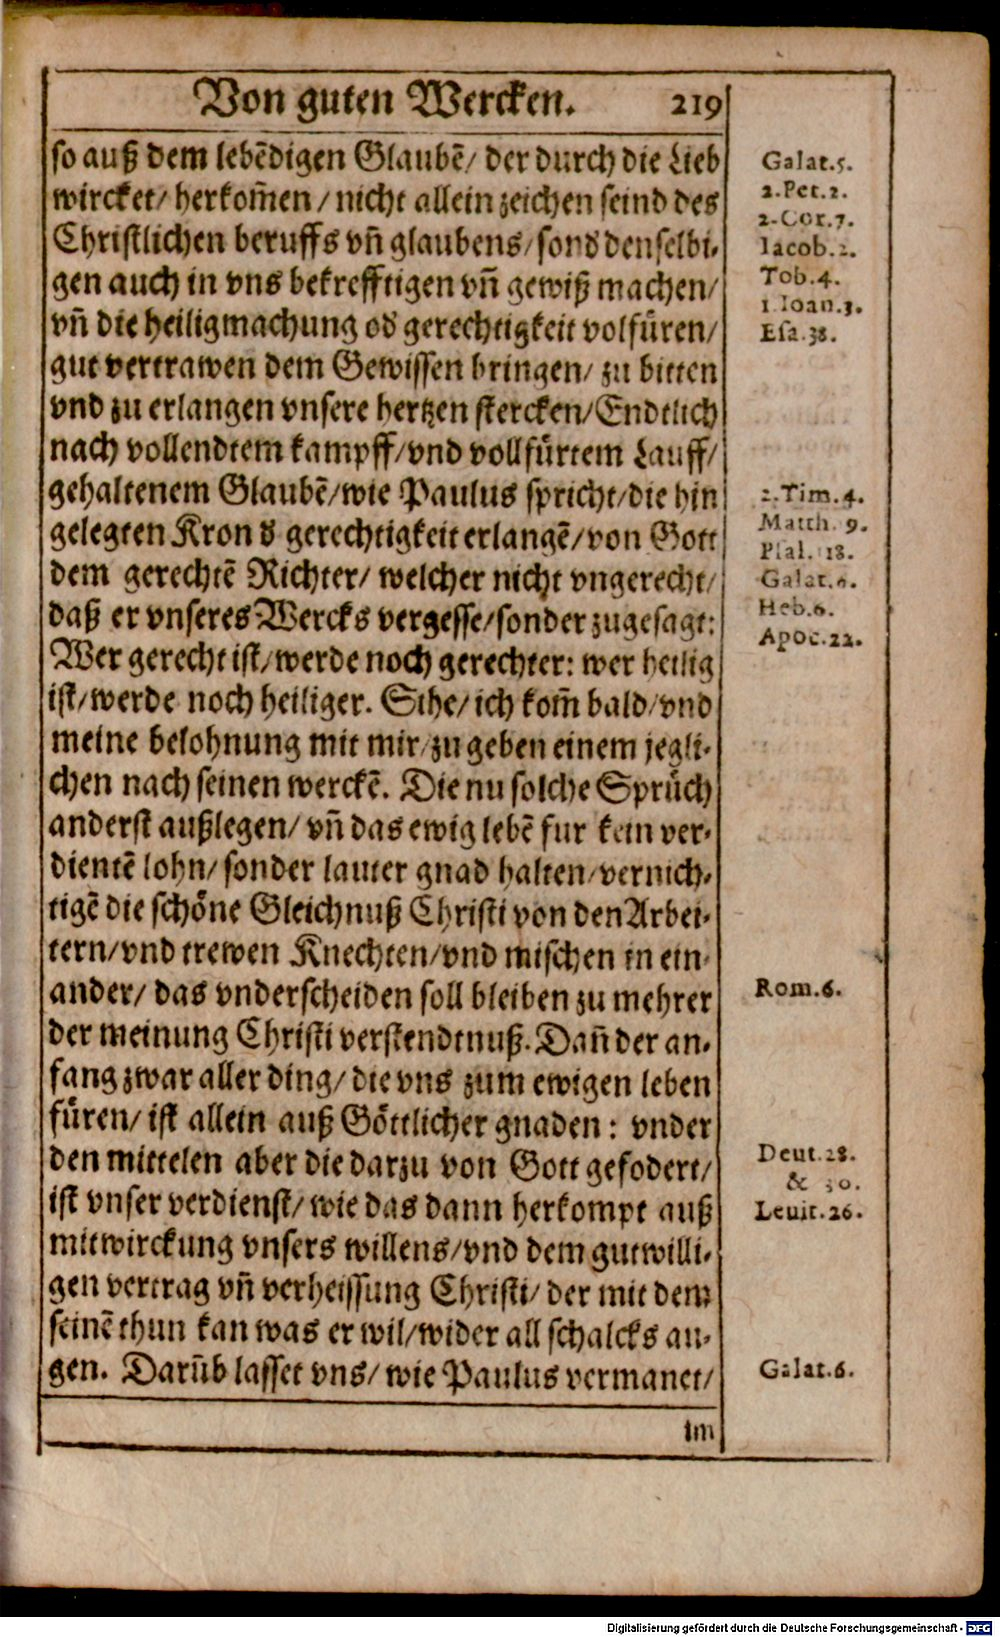 Von guten Wercken. 219
so auß dem lebēdigen Glaubē/ der durch die Lieb
wircket/ herkom̃en/ nicht allein zeichen seind des
Christlichen beruffs vñ glaubens/ sond denselbi-
gen auch in vns bekrefftigen vñ gewiß machen/
vñ die heiligmachung od gerechtigkeit volfüren/
gut vertrawen dem Gewissen bringen/ zu bitten
vnd zu erlangen vnsere hertzen stercken/ Endtlich
nach vollendtem kampff/ vnd vollfürtem Lauff/
gehaltenem Glaubē/ wie Paulus spricht/ die hin
gelegten Kron d gerechtigkeit erlangē/ von Gott
dem gerechtē Richter/ welcher nicht vngerecht/
daß er vnseres Wercks vergesse/ sonder zugesagt:
Wer gerecht ist/ werde noch gerechter: wer heilig
ist/ werde noch heiliger. Sihe/ ich kom̃ bald/ vnd
meine belohnung mit mir/ zu geben einem jegli-
chen nach seinen werckē. Die nu solche Sprüch
anderst außlegen/ vñ das ewig lebē fur kein ver-
dientē lohn/ sonder lauter gnad halten/ vernich-
tigē die schöne Gleichnuß Christi von den Arbei-
tern/ vnd trewen Knechten/ vnd mischen in ein-
ander/ das vnderscheiden soll bleiben zu mehrer
der meinung Christi verstendtnuß. Dañ der an-
fang zwar aller ding/ die vns zum ewigen leben
füren/ ist allein auß Göttlicher gnaden: vnder
den mittelen aber die darzu von Gott gefodert/
ist vnser verdienst/ wie das dann herkompt auß
mitwirckung vnsers willens/ vnd dem gutwilli-
gen vertrag vñ verheissung Christi/ der mit dem
seinē thun kan was er wil/ wider all schalcks au-
gen. Darūb lasset vns/ wie Paulus vermanet/
im
Galat.5.
2.Pet.2.
2.Cor.7.
Iacob.2.
Tob.4.
1.Ioan.3.
Esa.38.
2.Tim.4.
Matth.9.
Psal.118.
Galat.6.
Heb.6.
Apoc.22.
Rom.6.
Deut.28.
& 30.
Leuit.26.
Galat.6.
Digitalisierung gefördert durch die Deutsche Forschungsgemeinschaft - DFG